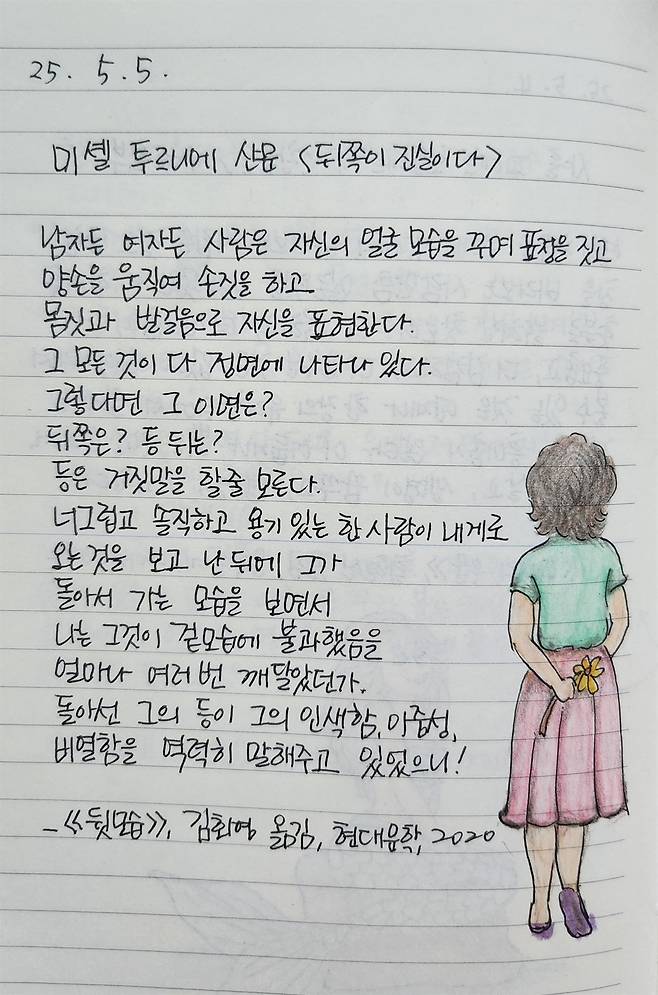 25. 5. 5.
미셸 투르니에 산문 <뒤쪽이 진실이다>
남자든 여자든 사람은 자신의 얼굴 모습을 꾸며 표정을 짓고
양손을 움직여 손짓을 하고
몸짓과 발걸음으로 자신을 표현한다.
그 모든 것이 다 정면에 나타나 있다.
그렇다면 그 이면은?
뒤쪽은? 등 뒤는?
등은 거짓말을 할줄 모른다.
너그럽고 솔직하고 용기 있는 한 사람이 내게로
오는 것을 보고 난 뒤에 그가
돌아서 가는 모습을 보면서
나는 그것이 겉모습에 불과했음을
얼마나 여러 번 깨달았던가.
돌아선 그의 등이 그의 인색함, 이중성,
비열함을 역력히 말해주고 있었으니!
- 《뒷모습》, 김화영 옮김, 현대문학, 2020